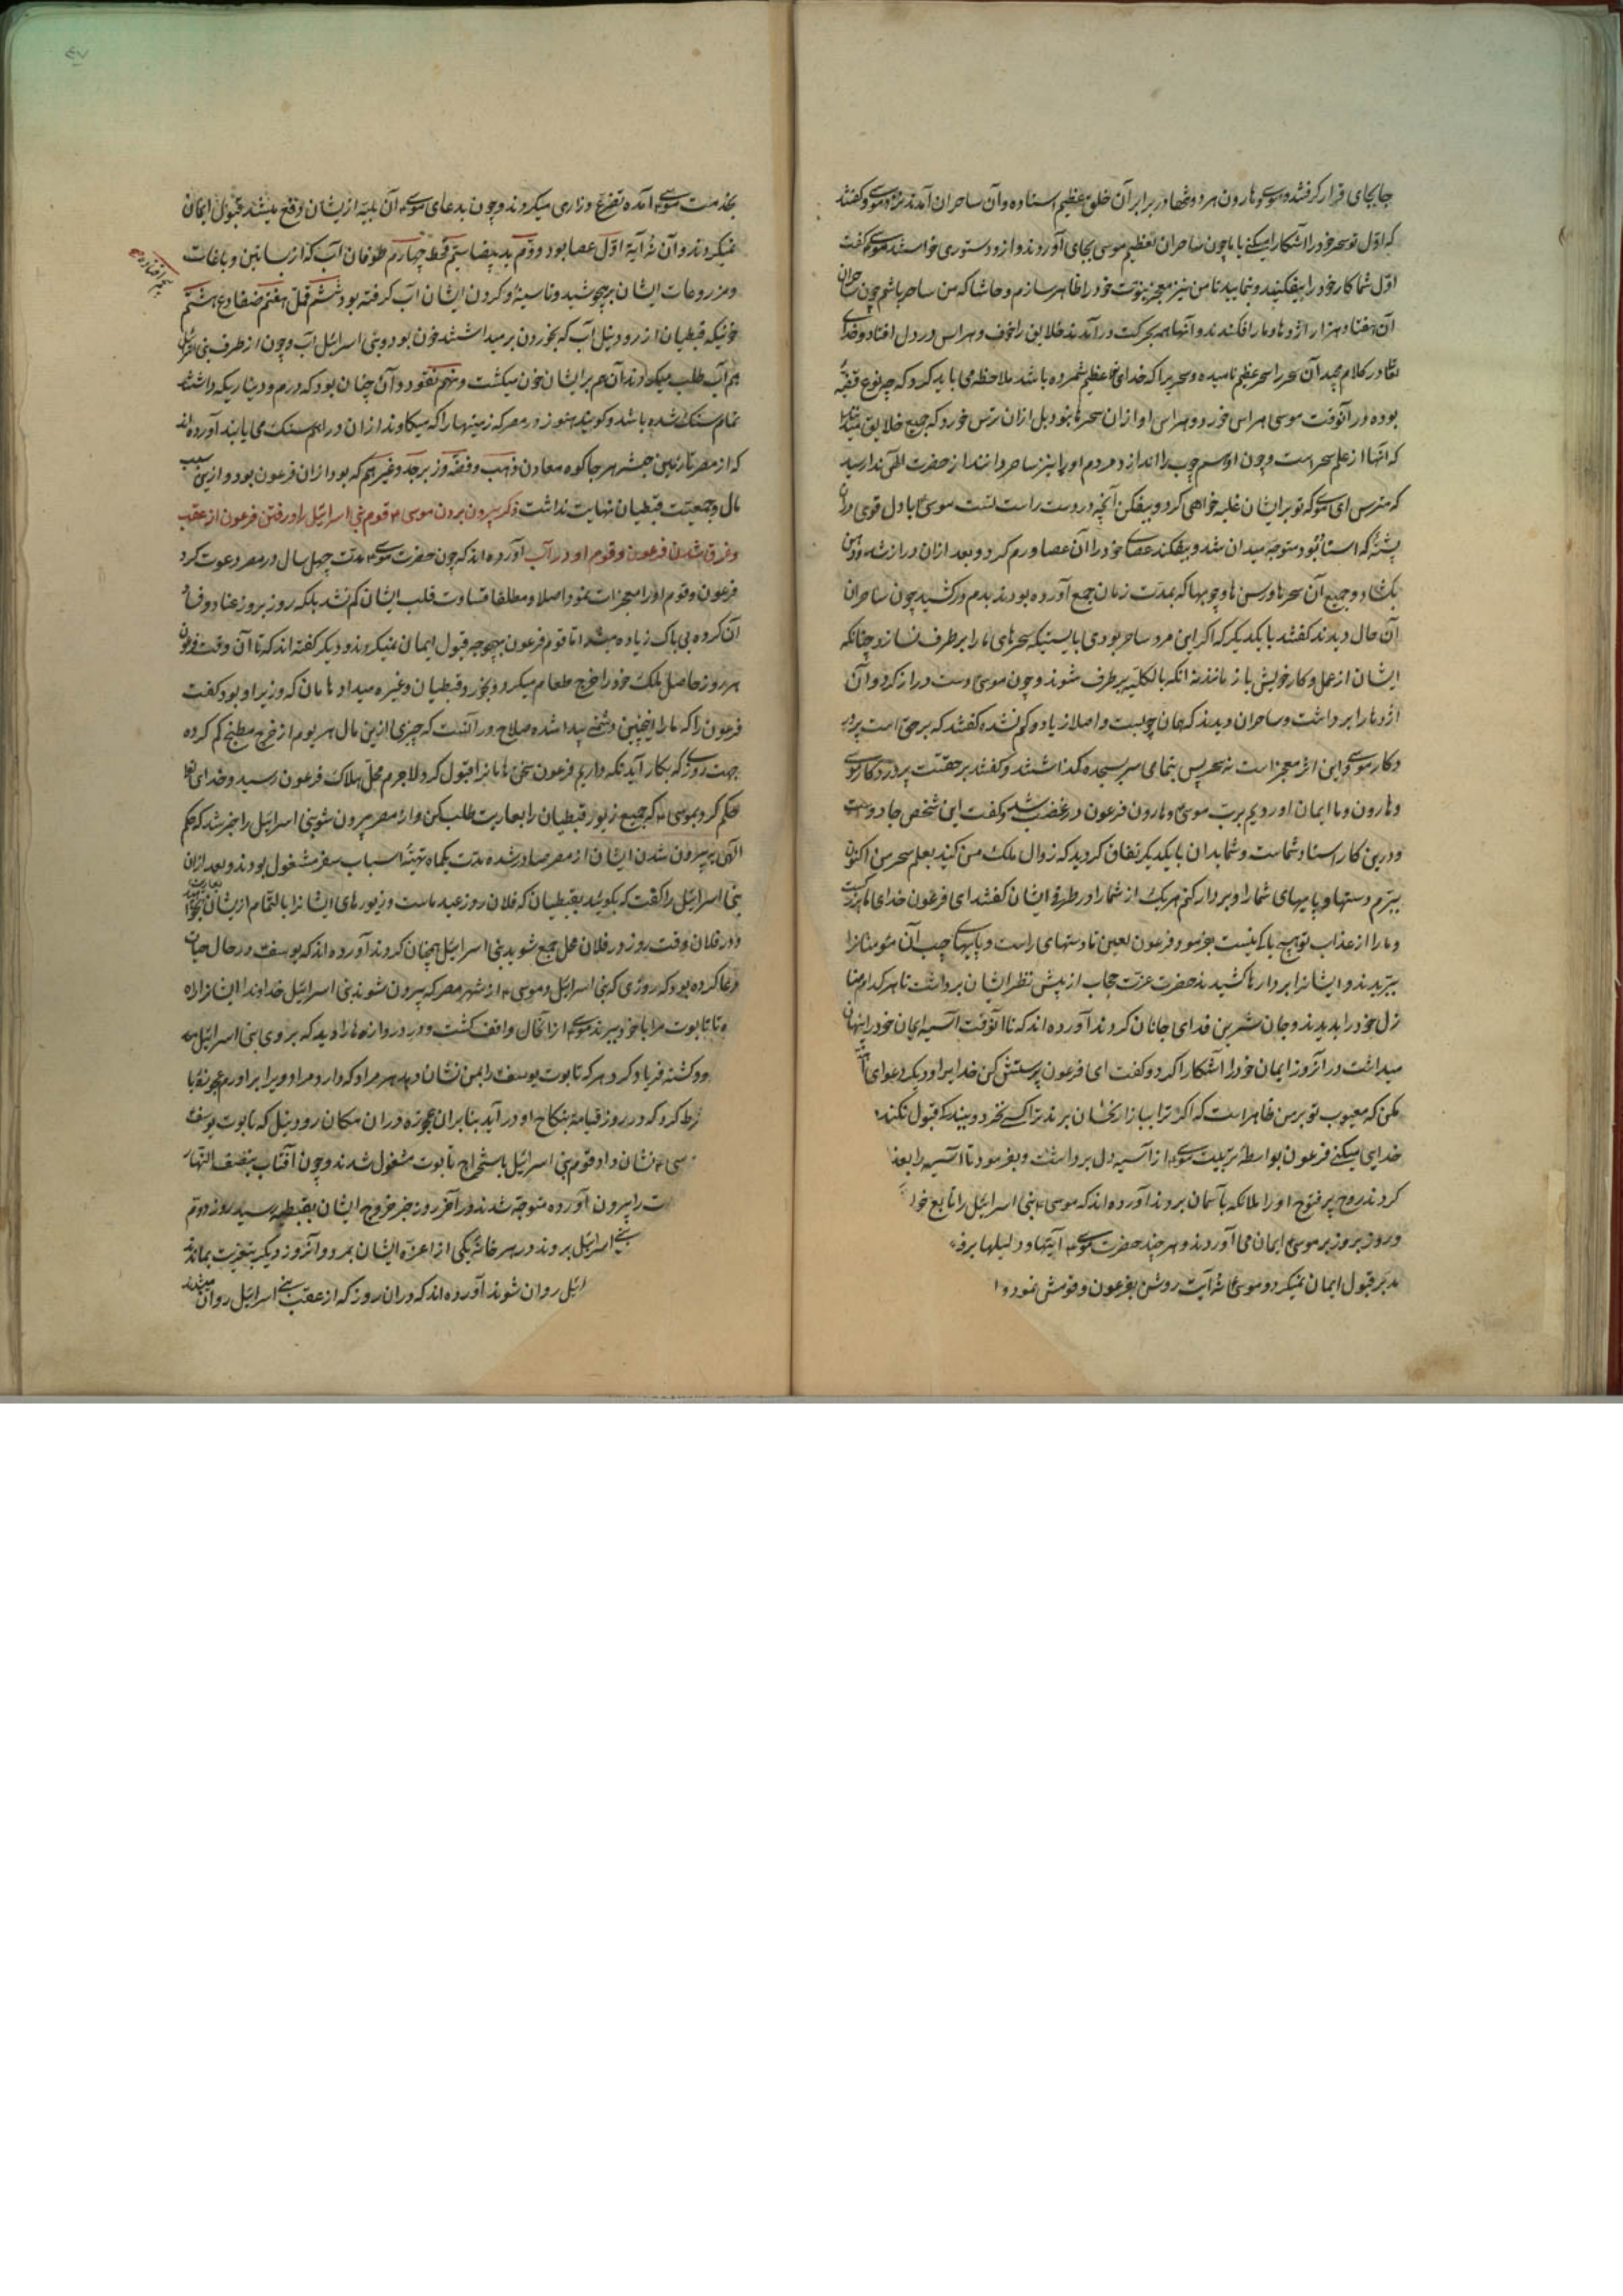 جابجای قرار گرفتند و موسی و هارون هر دو تنها در برابر آن خلق عظیم استاده و آن ساحران آمدند نزد موسی و گفتند
که اوّل تو سحر خود را آشکارا میکنی یا ما چون ساحران تعظیم موسی بجای آوردند و ازو دستوری خواستند موسی گفت
اوّل شما کار خود را بیفکنید و بنمایید تا من نیز معجز نبوّت خود را ظاهر سازم و حاشا که من ساحر باشم چون ساحران
آن هفتاد هزار اژدها و مار افکندند و آنها همه بحرکت درآمدند خلایق را خوف و هراس در دل افتاد و خدای
تعالی در کلام مجید آن سحر را سحر عظیم نامیده و سحریرا که خدای تعالی عظیم شمرده باشد ملاحظه می باید کرد که چه نوع قضیّه
بوده در آنوقت موسی هراس خورد و هراس او از آن سحرها نبود بل ازان ترس خورد که جمیع خلایق
که آنها از علم سحر است و چون او سم چوب را اندازد مردم او را نیز ساحر دانند از حضرت الهی ندا رسید
که مترس ای موسی که تو بر ایشان غلبه خواهی کرد و بیفکن آنچه در دست راست تست موسی با دل قوی دران
پشته که استاده بود متوجّه میدان شد و بیفکند عصای خود را آن عصا ورم کرد و بعد ازان دراز شد و دهن
بگشاد و جمیع آن سحرها و رسن ها و چوبها که بمدّت زمان جمع آورده بودند بدم درکشید چون ساحران
آن حال دیدند گفتند با یکدیگر که اگر این مرد ساحر بودی بایستیکه سحرهای ما را برطرف نسازد چنانکه
ایشان از عمل و کار خویش باز مانند نه انکه بالکلّیه برطرف شوند و چون موسی دست دراز کرد و آن
اژدها را برداشت و ساحران دیدند که همان چوبست و اصلا زیاد و کم نشده گفتند که برحق است پرورد
و کار موسی و این اثر معجز است نه سحر پس بتمامی سر بسجده گذاشتند و گفتند برحقست پروردکار موسی
و هارون و ما ایمان اوردیم برب موسی و هارون فرعون در غضب شد و گفت این شخص جادوست
و درین کار استاد شماست و شما بدان با یکدیگر اتفاق کردید که زوال ملک من کنید بعلم سحر من اکنون
ببرّم دستها و پایهای شما را و بر دار کنم هر یک از شما را در طرفی ایشان گفتند ای فرعون خدای ما
و ما را از عذاب تو هیچ باکی نیست بفرمود فرعون لعین تا دستهای راست و پایهای چپ آن مؤمنانرا
ببریدند و ایشانرا بر دارها کشیدند حضرت عزت حجاب از پیش نظر ایشان برداشت تا هر کدام
زل خود را بدیدند و جان شیرین فدای جانان کردند آورده اند که تا آنوقت آسیه ایمان خود را پنهان
میداشت در آنروز ایمان خود را آشکارا کرد و گفت ای فرعون پرستش کن خدایرا و دیگر دعوای
مکن که معیوب تو بر من ظاهر است که اگر ترا ببازار نخّاسان برند ترا کسی نخرد و بیند که قبول نکند
خدایی میکنی فرعون بواسطهٔ تربیت موسی از آسیه دل برداشت و بفرمود تا آسیه را بعذ
کردند روح پرفتوح او را ملائکه بآسمان بردند آورده اند که موسی بنی اسرائیل را تابع خو
و روز بروز بر موسی ایمان می آوردند و هر چند حضرت موسی آیتها و دلیلها بر
بد بر قبول ایمان نمیکرد و موسی نه آیت روشن بفرعون و قومش نمود و
بخدمت موسی آمده تضرّع و زاری میکردند و چون بدعای موسی آن بلیّه ازیشان دفع میشد قبول ایمان
نمیکردند و آن نُه آیه اوّل عصا بود دوّم ید بیضا سیّم قحط چهارم طوفان آب که از بساتین و باغات
و مزروعات ایشان برجوشید و تا سینه و گردن ایشان آب گرفته بود ششم قمّل هفتم ضفادع هشتم
خونیکه قبطیان از رود نیل آب که بخوردن برمیداشتند خون بود و بنی اسرائیل آب و چون از طرف بنی اسرائیل
هم آب طلب میکردند آن هم بر ایشان خون میگشت و نهم نقود و آن چنان بود که درم و دیناریکه داشتند
تمام سنگ شده باشد و گویند هنوز در مصر که زمینها را که میکاوند ازان دراهم سنگ می یابند آورده اند
که از مصر تا زمین حبشه هر جا کوه معادن ذهب و فضّه و زبرجد و غیرهم که بود ازان فرعون بود و ازین سبب
مال و جمعیّت قبطیان نهایت نداشت ذکر بیرون بردن موسی قوم بنی اسرائیل را و رفتن فرعون از عقب
و غرق شدن فرعون و قوم او در آب آورده اند که چون حضرت موسی مدّت چهل سال در مصر دعوت کرد
فرعون و قوم او را معجزات بنمود اصلا و مطلقا قساوت قلب ایشان کم نشد بلکه روز بروز عناد و فساد
آن گروه بی باک زیاده میشد اما قوم فرعون بهیچوجه قبول ایمان نمیکردند و دیگر گفته اند که تا آن وقت فرعون
هر روز حاصل ملک خود را خرج طعام میکرد و بخورد قبطیان و غیره میداد هامان که وزیر او بود گفت
فرعون را که ما را اینچنین دشمنی پیدا شده صلاح در آنست که چیزی ازین مال هر یوم از خرج مطبخ کم کرده
جهت روزی که بکار آید نگه داریم فرعون سخن هامانرا قبول کرد لاجرم محلّ هلاک فرعون رسید و خدای تعالی
حکم کرد بموسی که جمیع زیور قبطیان را بعاریت طلب کن و از مصر بیرون شو بنی اسرائیل را خبر شد که حکم
الهی بر بیرون شدن ایشان از مصر صادر شده مدّت یکماه بتهیّه اسباب سفر مشغول بودند و بعد ازان
بنی اسرائیل را گفت که بگوئید بقبطیان که فلان روز عید ماست و زیورهای ایشانرا بالتّمام ازیشان بعاریت
و در فلان وقت روز در فلان محل جمع شوید بنی اسرائیل همچنان کردند آورده اند که یوسف در حال حیات
دعا کرده بود که روزی که بنی اسرائیل و موسی از شهر مصر که بیرون شوند بنی اسرائیل خداوندا ایشانرا راه
تا تابوت مرا با خود ببرند موسی ازانحال واقف گشت و در دروازه ها را دید که بروی بنی اسرائیل
ود گشته فریاد کرد هر که تابوت یوسف را بمن نشان دهد هر مراد که دارد مراد ویرا برآورم عجوزهٔ با
رط کرد که در روز قیامة بنکاح او درآید بنابران عجوزه دران مکان رود نیل که تابوت یوسف
سی نشان داد قوم بنی اسرائیل باستخراج تابوت مشغول شدند و چون آفتاب بنصف النّهار
ت را بیرون آورده متوجّه شدند در آخر روز خبر خروج ایشان بقبطیه رسید روز دوّم
بنی اسرائیل بروند در هر خانهٔ یکی از اعزّه ایشان بمرد و آنروز دیگر بتعزیت بماندند
ائیل روان شوند آورده اند که دران روز که از عقب بنی اسرائیل روان میشدند